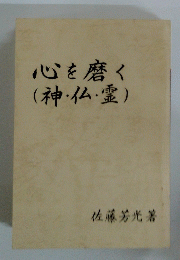 心を磨く
(神・仏・霊)
佐藤芳光著